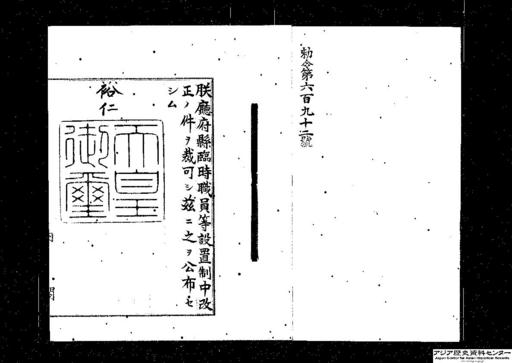 勅令第六百九十二號
朕廳府縣臨時職員等設置制中改
正ノ件ヲ裁可シ茲ニ之ヲ公布セ
シム
裕仁
天皇
御璽
閣
アジア歴史資料センター
Japan Center for Asian Historical Records